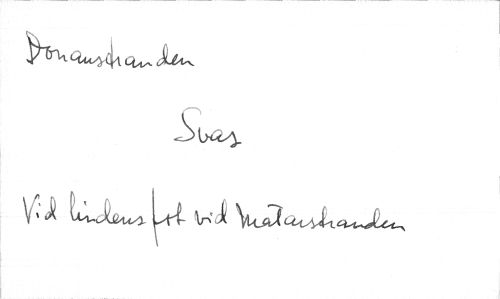 Donaustranden
Svas
Vid lindens fot vid Mälarstranden